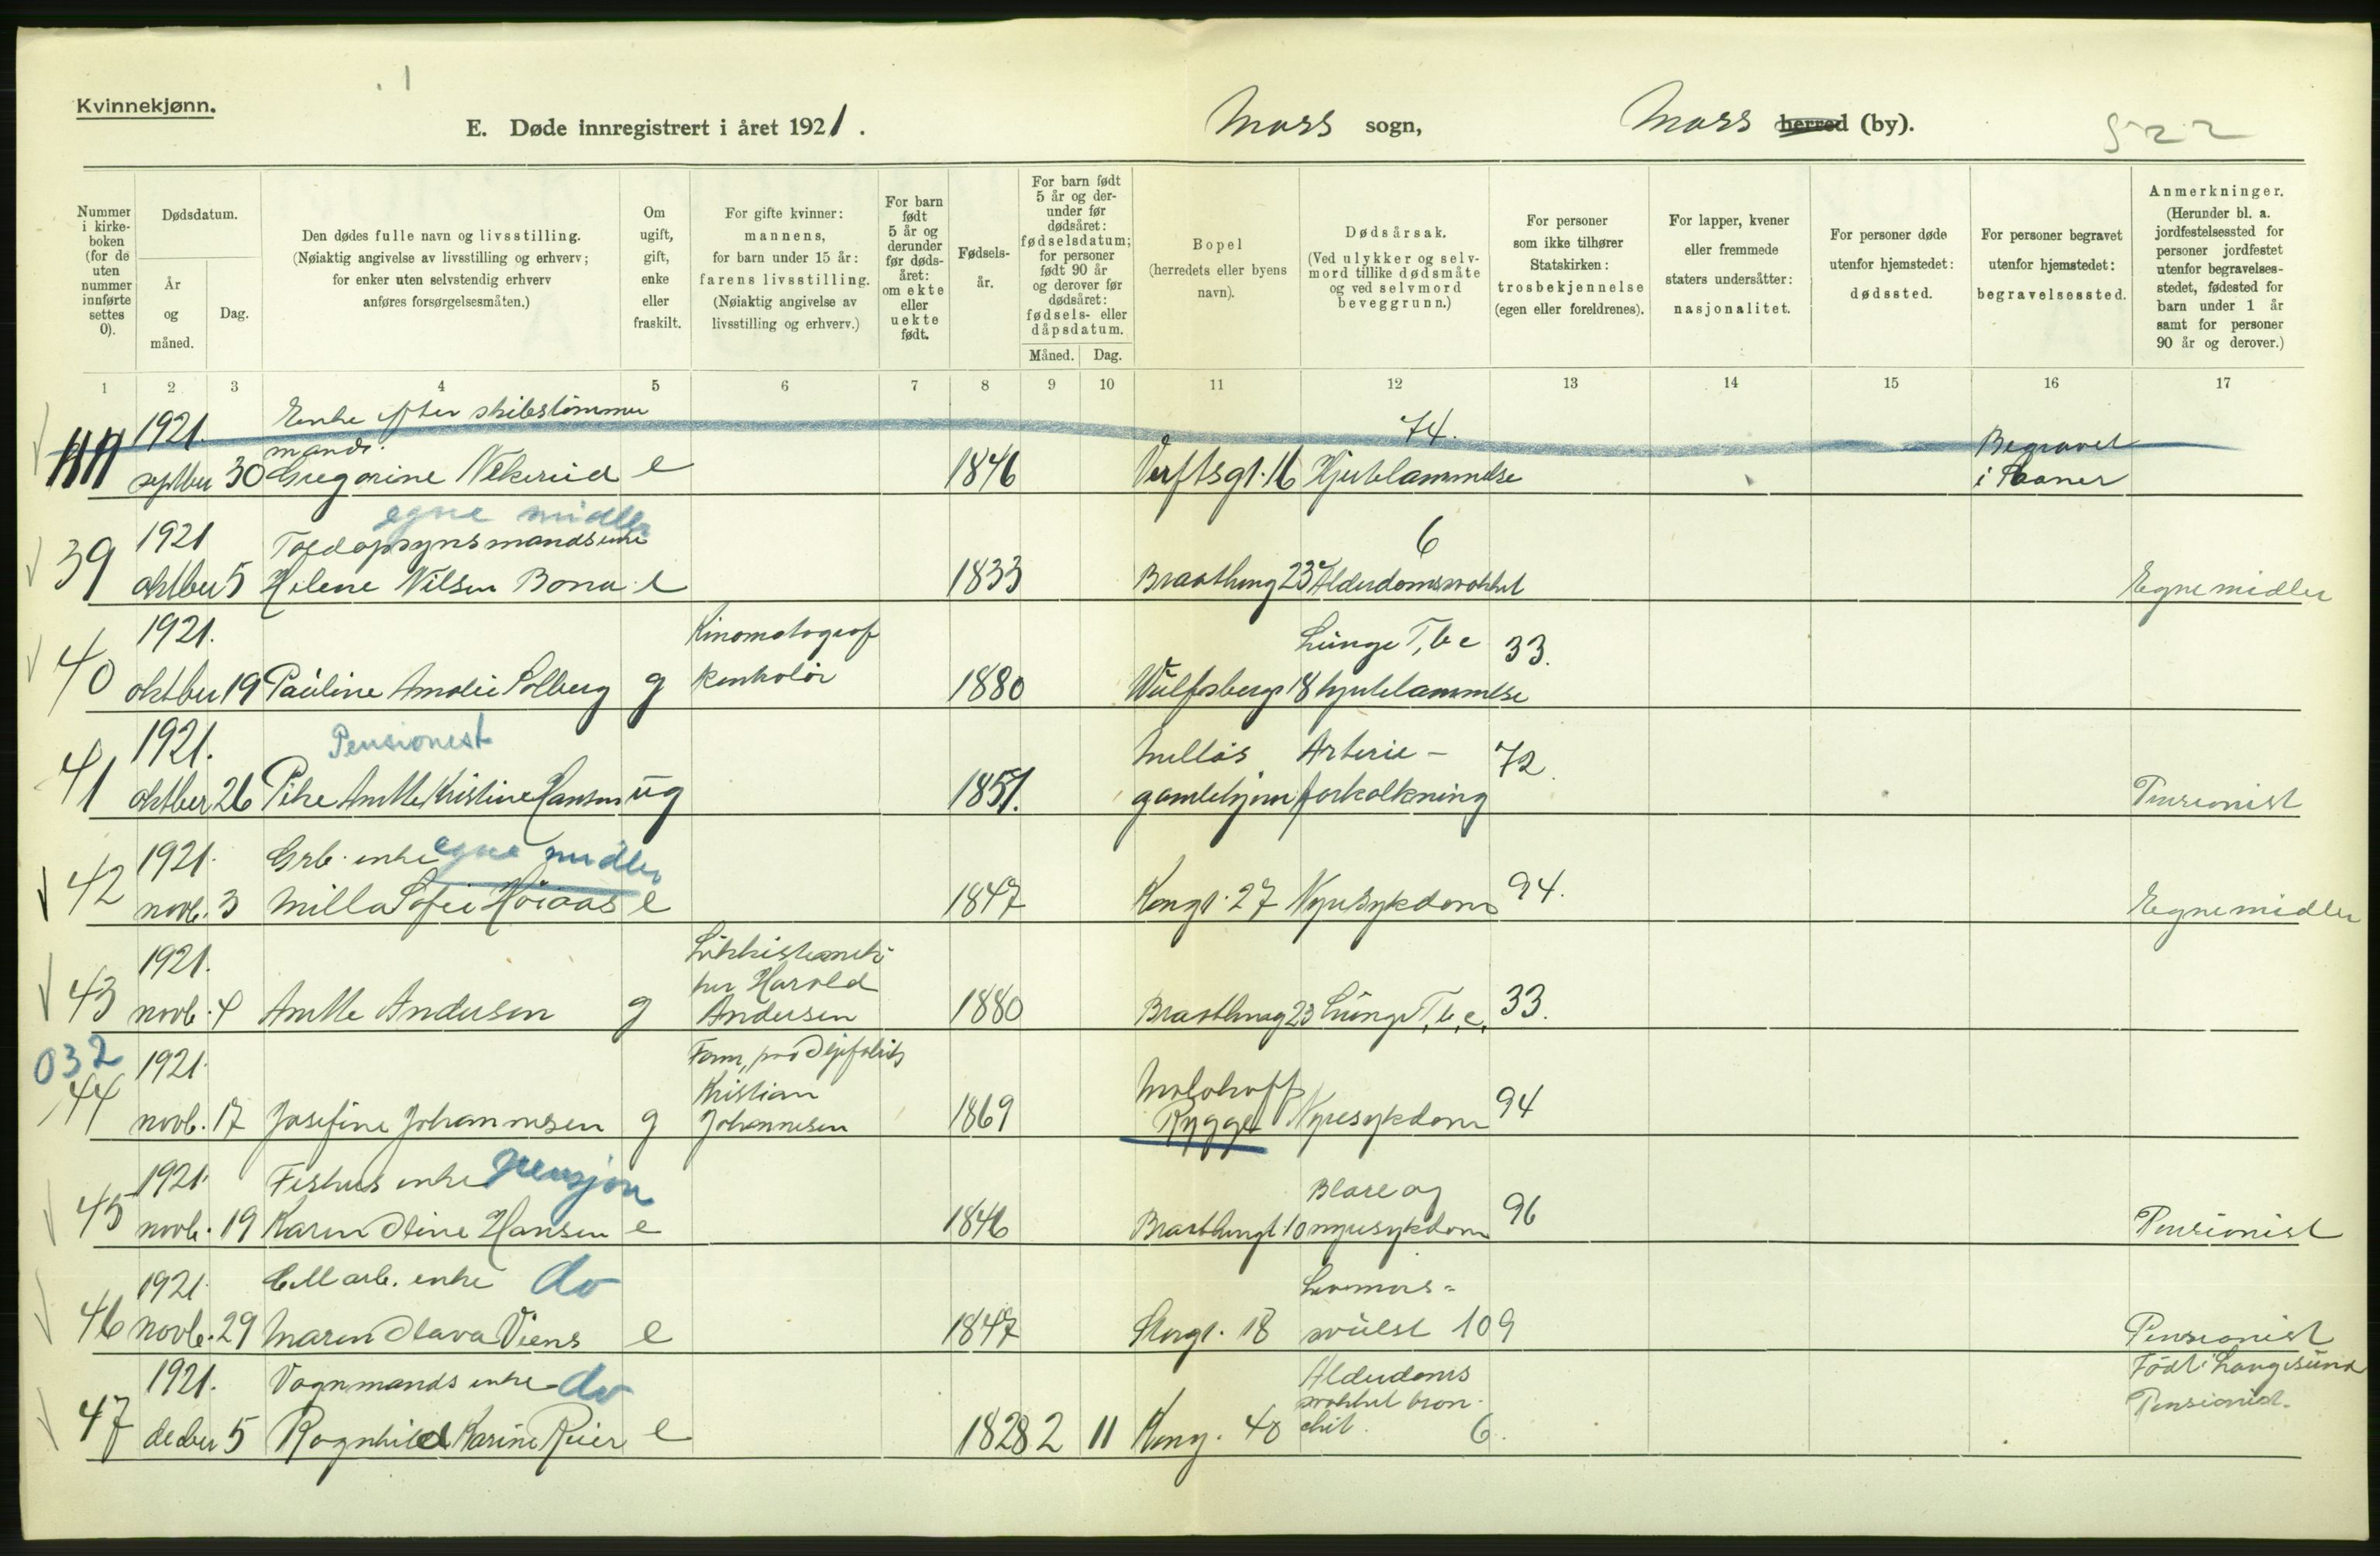 Kvinnekjønn.
E. Døde innregistrert i året 1921.
Moss sogn,
Moss herred (by).
522
Nummer i kirke-boken (for de uten nummer innførte settes 0).
Dødsdatum.
År og måned.
Dag.
Den dødes fulle navn og livsstilling.
(Nøiaktig angivelse av livsstilling og erhverv;
for enker uten selvstendig erhverv
anføres forsørgelsesmåten.)
Om ugift, gift, enke eller fraskilt.
For gifte kvinner:
mannens,
for barn under 15 år:
farens livsstilling.
(Nøiaktig angivelse av
livsstilling og erhverv.)
For barn født 5 år og derunder før døds-året: om ekte eller uekte født.
Fødsels-år.
For barn født 5 år og der-under før dødsåret: fødselsdatum; for personer født 90 år og derover før dødsåret: fødsels- eller dåpsdatum.
Måned.
Dag.
Bopel
(herredets eller byens
navn).
Dødsårsak.
(Ved ulykker og selv-
mord tillike dødsmåte
og ved selvmord
beveggrunn.)
For personer
som ikke tilhører
Statskirken:
trosbekjennelse
(egen eller foreldrenes).
For lapper, kvener
eller fremmede
staters undersåtter:
nasjonalitet.
For personer døde
utenfor hjemstedet:
dødssted.
For personer begravet
utenfor hjemstedet:
begravelsessted.
Anmerkninger.
(Herunder bl. a.
jordfestelsessted for
personer jordfestet
utenfor begravelses-
stedet, fødested for
barn under 1 år
samt for personer
90 år og derover.)
1 2 3 4 5 6 7 8 9 10 11 12 13 14 15 16 17
1921. Enke efter skibstømmer 74. Begravet
mands.
septber 30 Gregorine e 1846 Verftsgt. 16 Hjertelammelse i Saaner
egne midler
1921 Toldopsynsmandsenke 6
39 oktber 5 Helene Nilsen Borna e 1833 23 Alderdomssvakhet Egne midler
1921. Kinomatograf Lunge T, b c 33.
40 oktber 19 Pauline Amalie Solberg g kontrolør 1880 Wulfsbergs 18 hjertelammelse
1921. Pensionist Melløs Arterie- 72.
41 oktber 26 Pike Anette Kristine Hansen ug 1851. gamlehjem forkalkning Pensionist
1921. Grb. enke egne midler
42 novb. 3 Milla Sofie Høiaas e 1847 Kongt. 27 Nyresykdom 94. Egne midler
1921. Likkistema
ker Harald
43 novb. 4 Anette Andersen g Andersen 1880 23 Lunge T, b, c, 33.
032
1921. Form,
Kristian Molohoff
44 novb. 17 Josefine Johannesen g Johannesen 1869 Rygge Nyresykdom 94
1921. Fiskers enke pensjon Blære og
45 novb. 19 Karen Oline Hansen e 1846 10 nyresykdom 96 Pensionist
1921. Cell arb. enke do Livmors=
46 novb. 29 Maren Olava Viens e 1847 Storgt. 18 svulst 109 Pensionist
1921. Vognmands enke do Alderdoms Født i Langesund
svakhet bron- Pensionist.
47 decber 5 Ragnhild Karine Reier e 1828 2 11 Kong. 40 chit. 6.